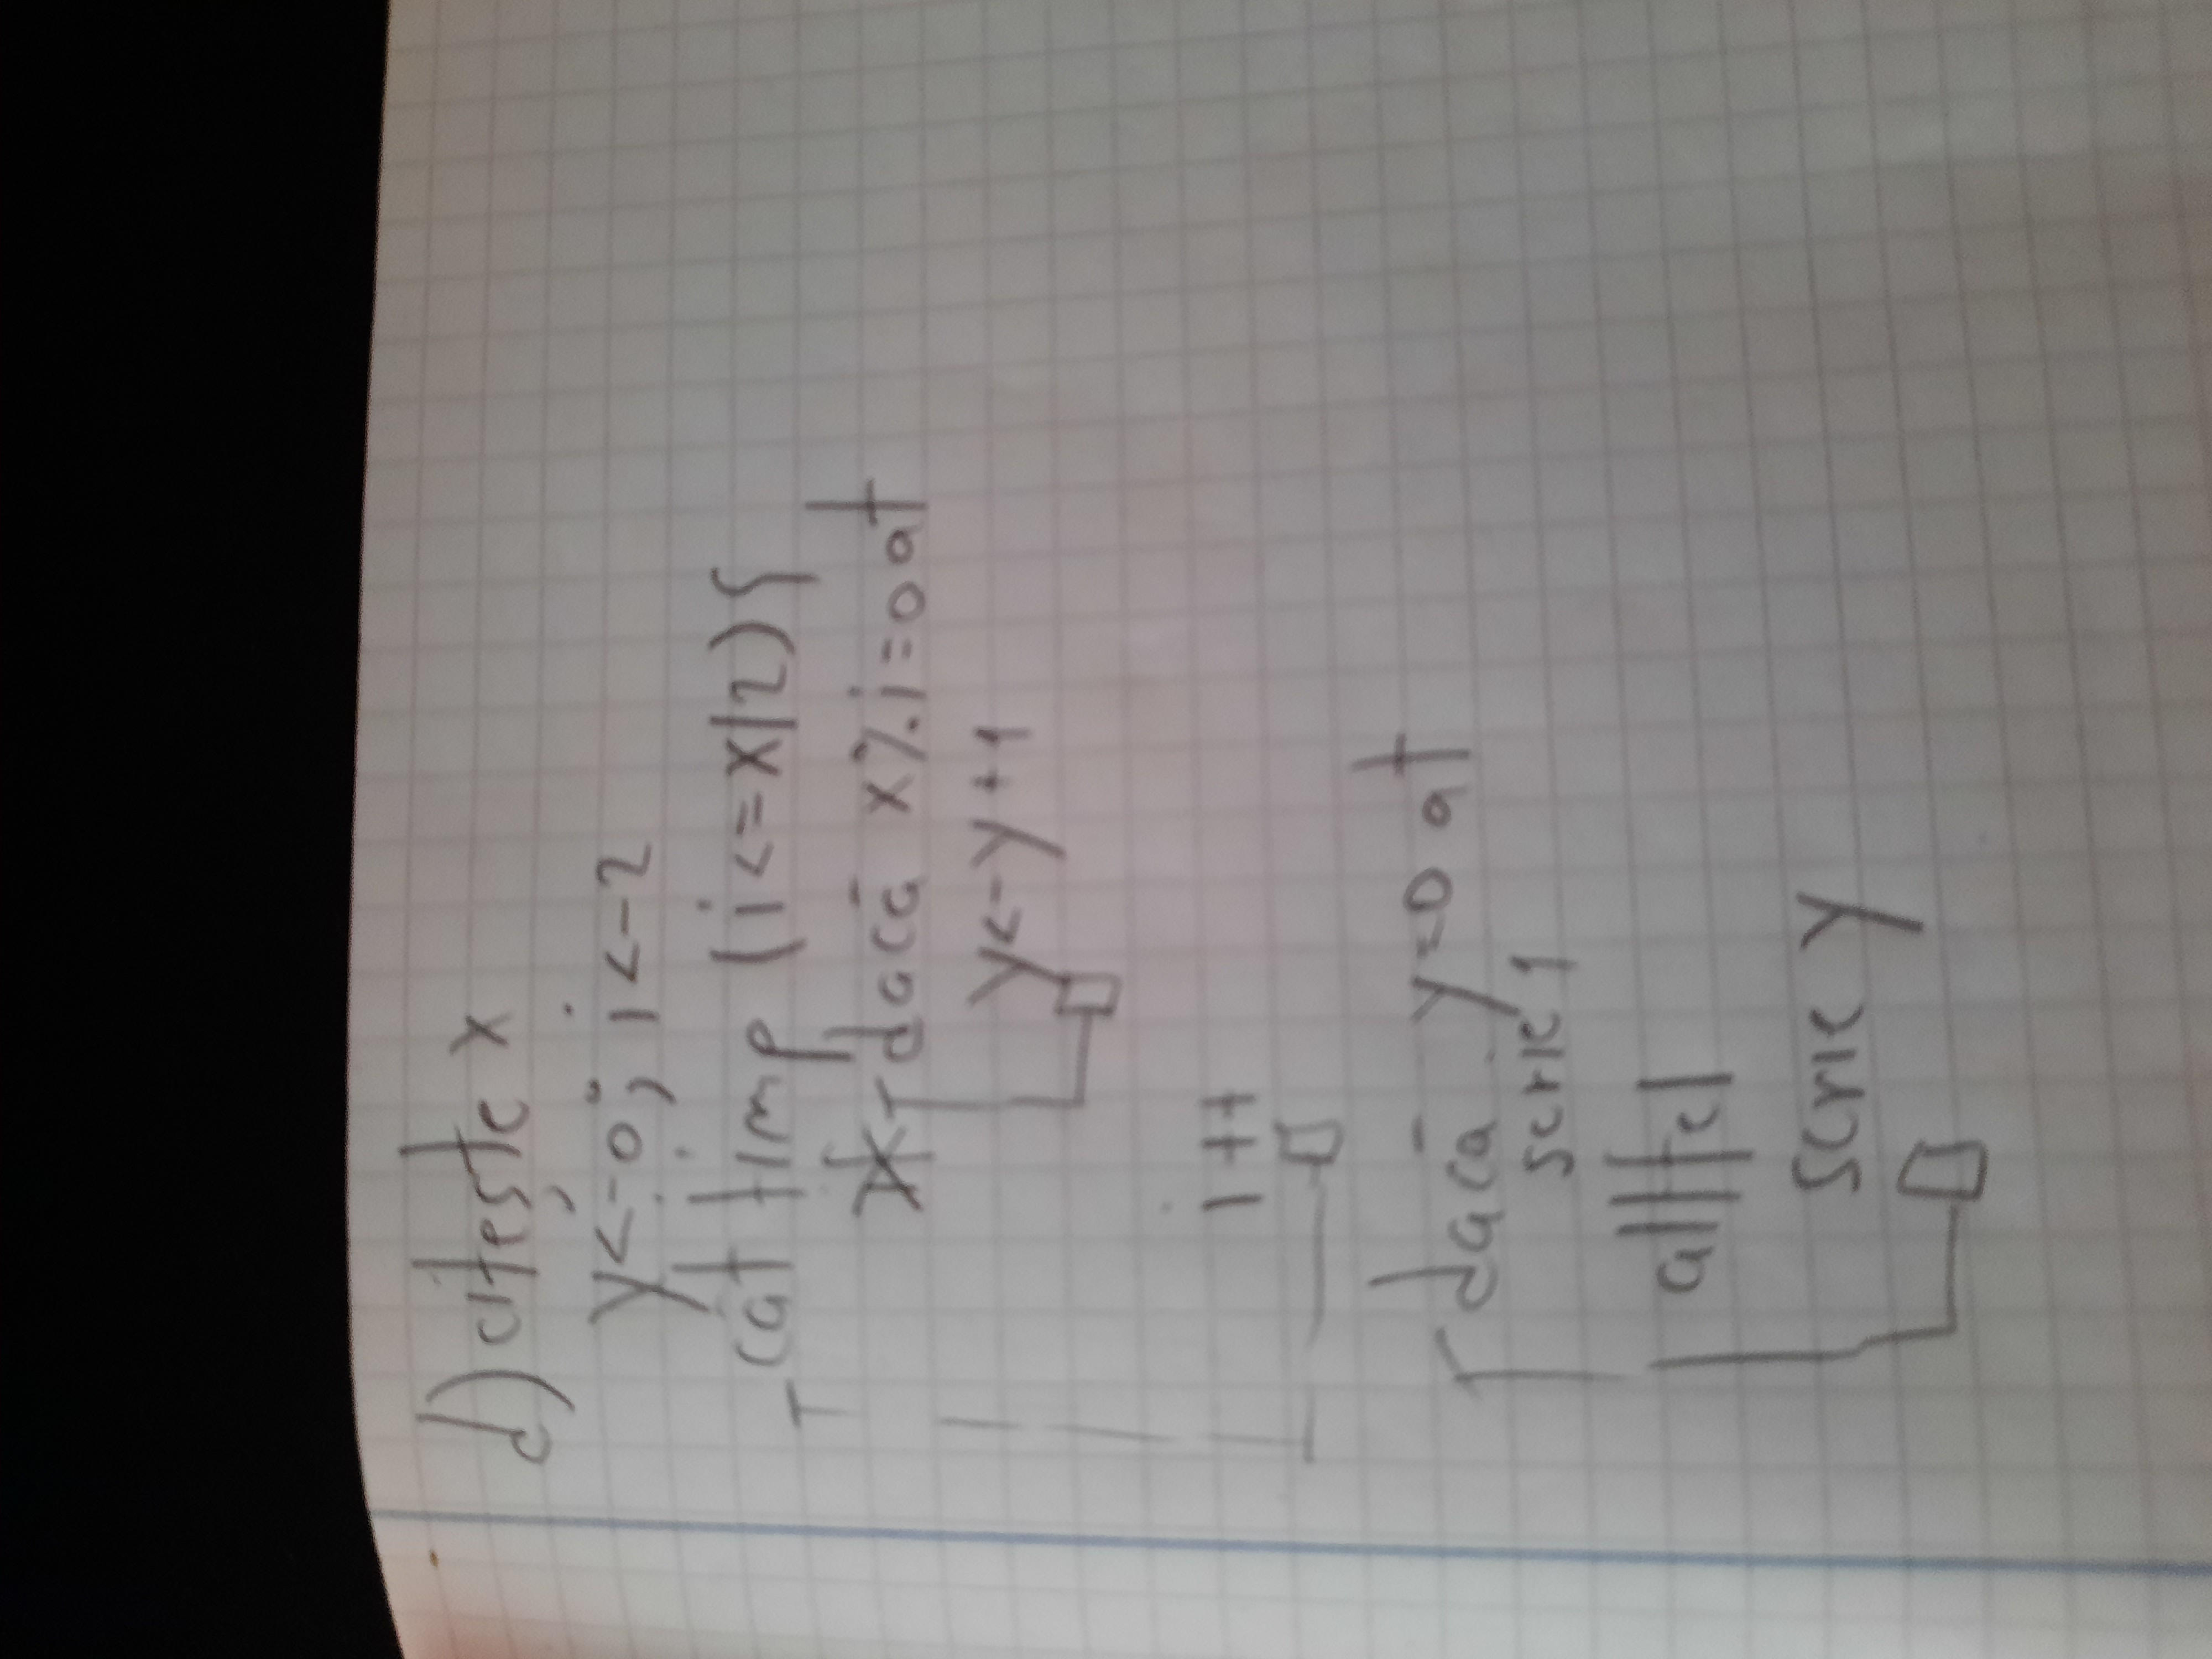 d) citește x
y<-0; i<-2
cât timp (i<=x/2){
dacă x%i=0 at
y<-y+1
i++
dacă y=0 at
scrie 1
altfel
scrie y